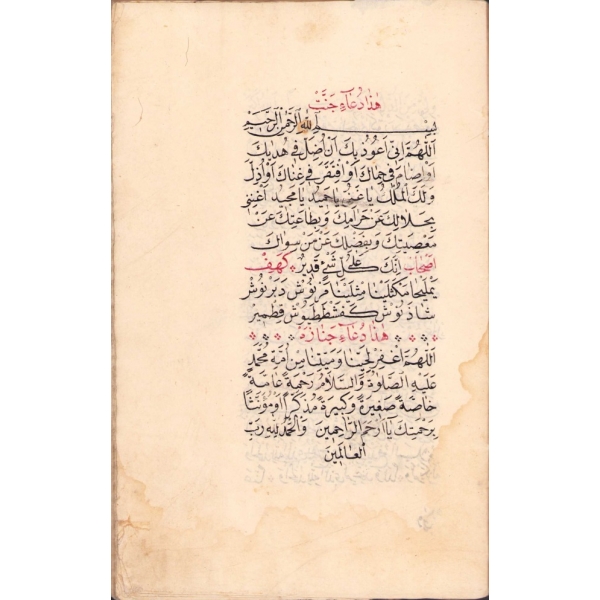 هذا دعاء جنت
بسم الله الرحمن الرحيم
اللهم انى اعوذ بك ان اضل فى هديك
او اضام فى حماك او افتقر فى غناك او اذل
ولك الملك يا غنى يا حميد يا مجيد اغننى
بحلالك عن حرامك وبطاعتك عن
معصيتك وبفضلك عن من سواك
اصحاب انك على كل شئ قدير كهيف
يمليخا مكثلينا مثلينا مرنوش دبرنوش
شاذنوش كفشططيوش قطمير
هذا دعاء جنازه
اللهم اغفر لحينا وميتنا من امة محمد
عليه الصلوة والسلام رحمة عامة
خاصة صغيرة وكبيرة مذكرا او مؤنثا
برحمتك يا ارحم الراحمين والحمد لله رب
العالمين